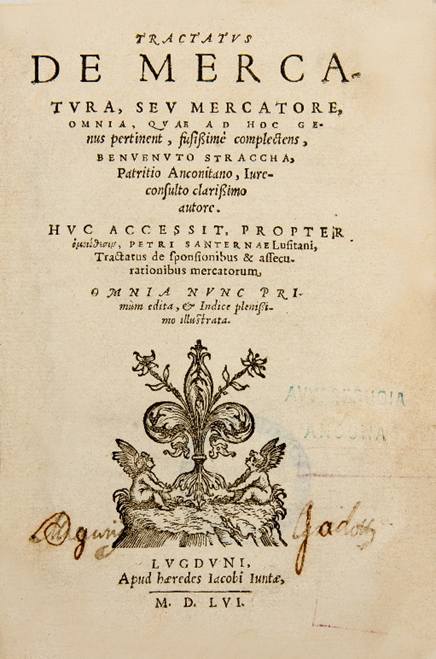 TRACTATVS
DE MERCA-
TVRA, SEV MERCATORE,
OMNIA, QVAE AD HOC GE-
nus pertinent, fusißimè complectens,
BENVENVTO STRACCHA,
Patritio Anconitano, Iure-
consulto clarißimo
autore.
HVC ACCESSIT, PROPTER
PETRI SANTERNAE Lusitani,
Tractatus de sponsionibus & assecu-
rationibus mercatorum,
OMNIA NVNC PRI-
mùm edita, & Indice plenißi-
mo illustrata.
ANCONA
LVGDVNI,
Apud hæredes Iacobi Iuntæ,
M. D. LVI.